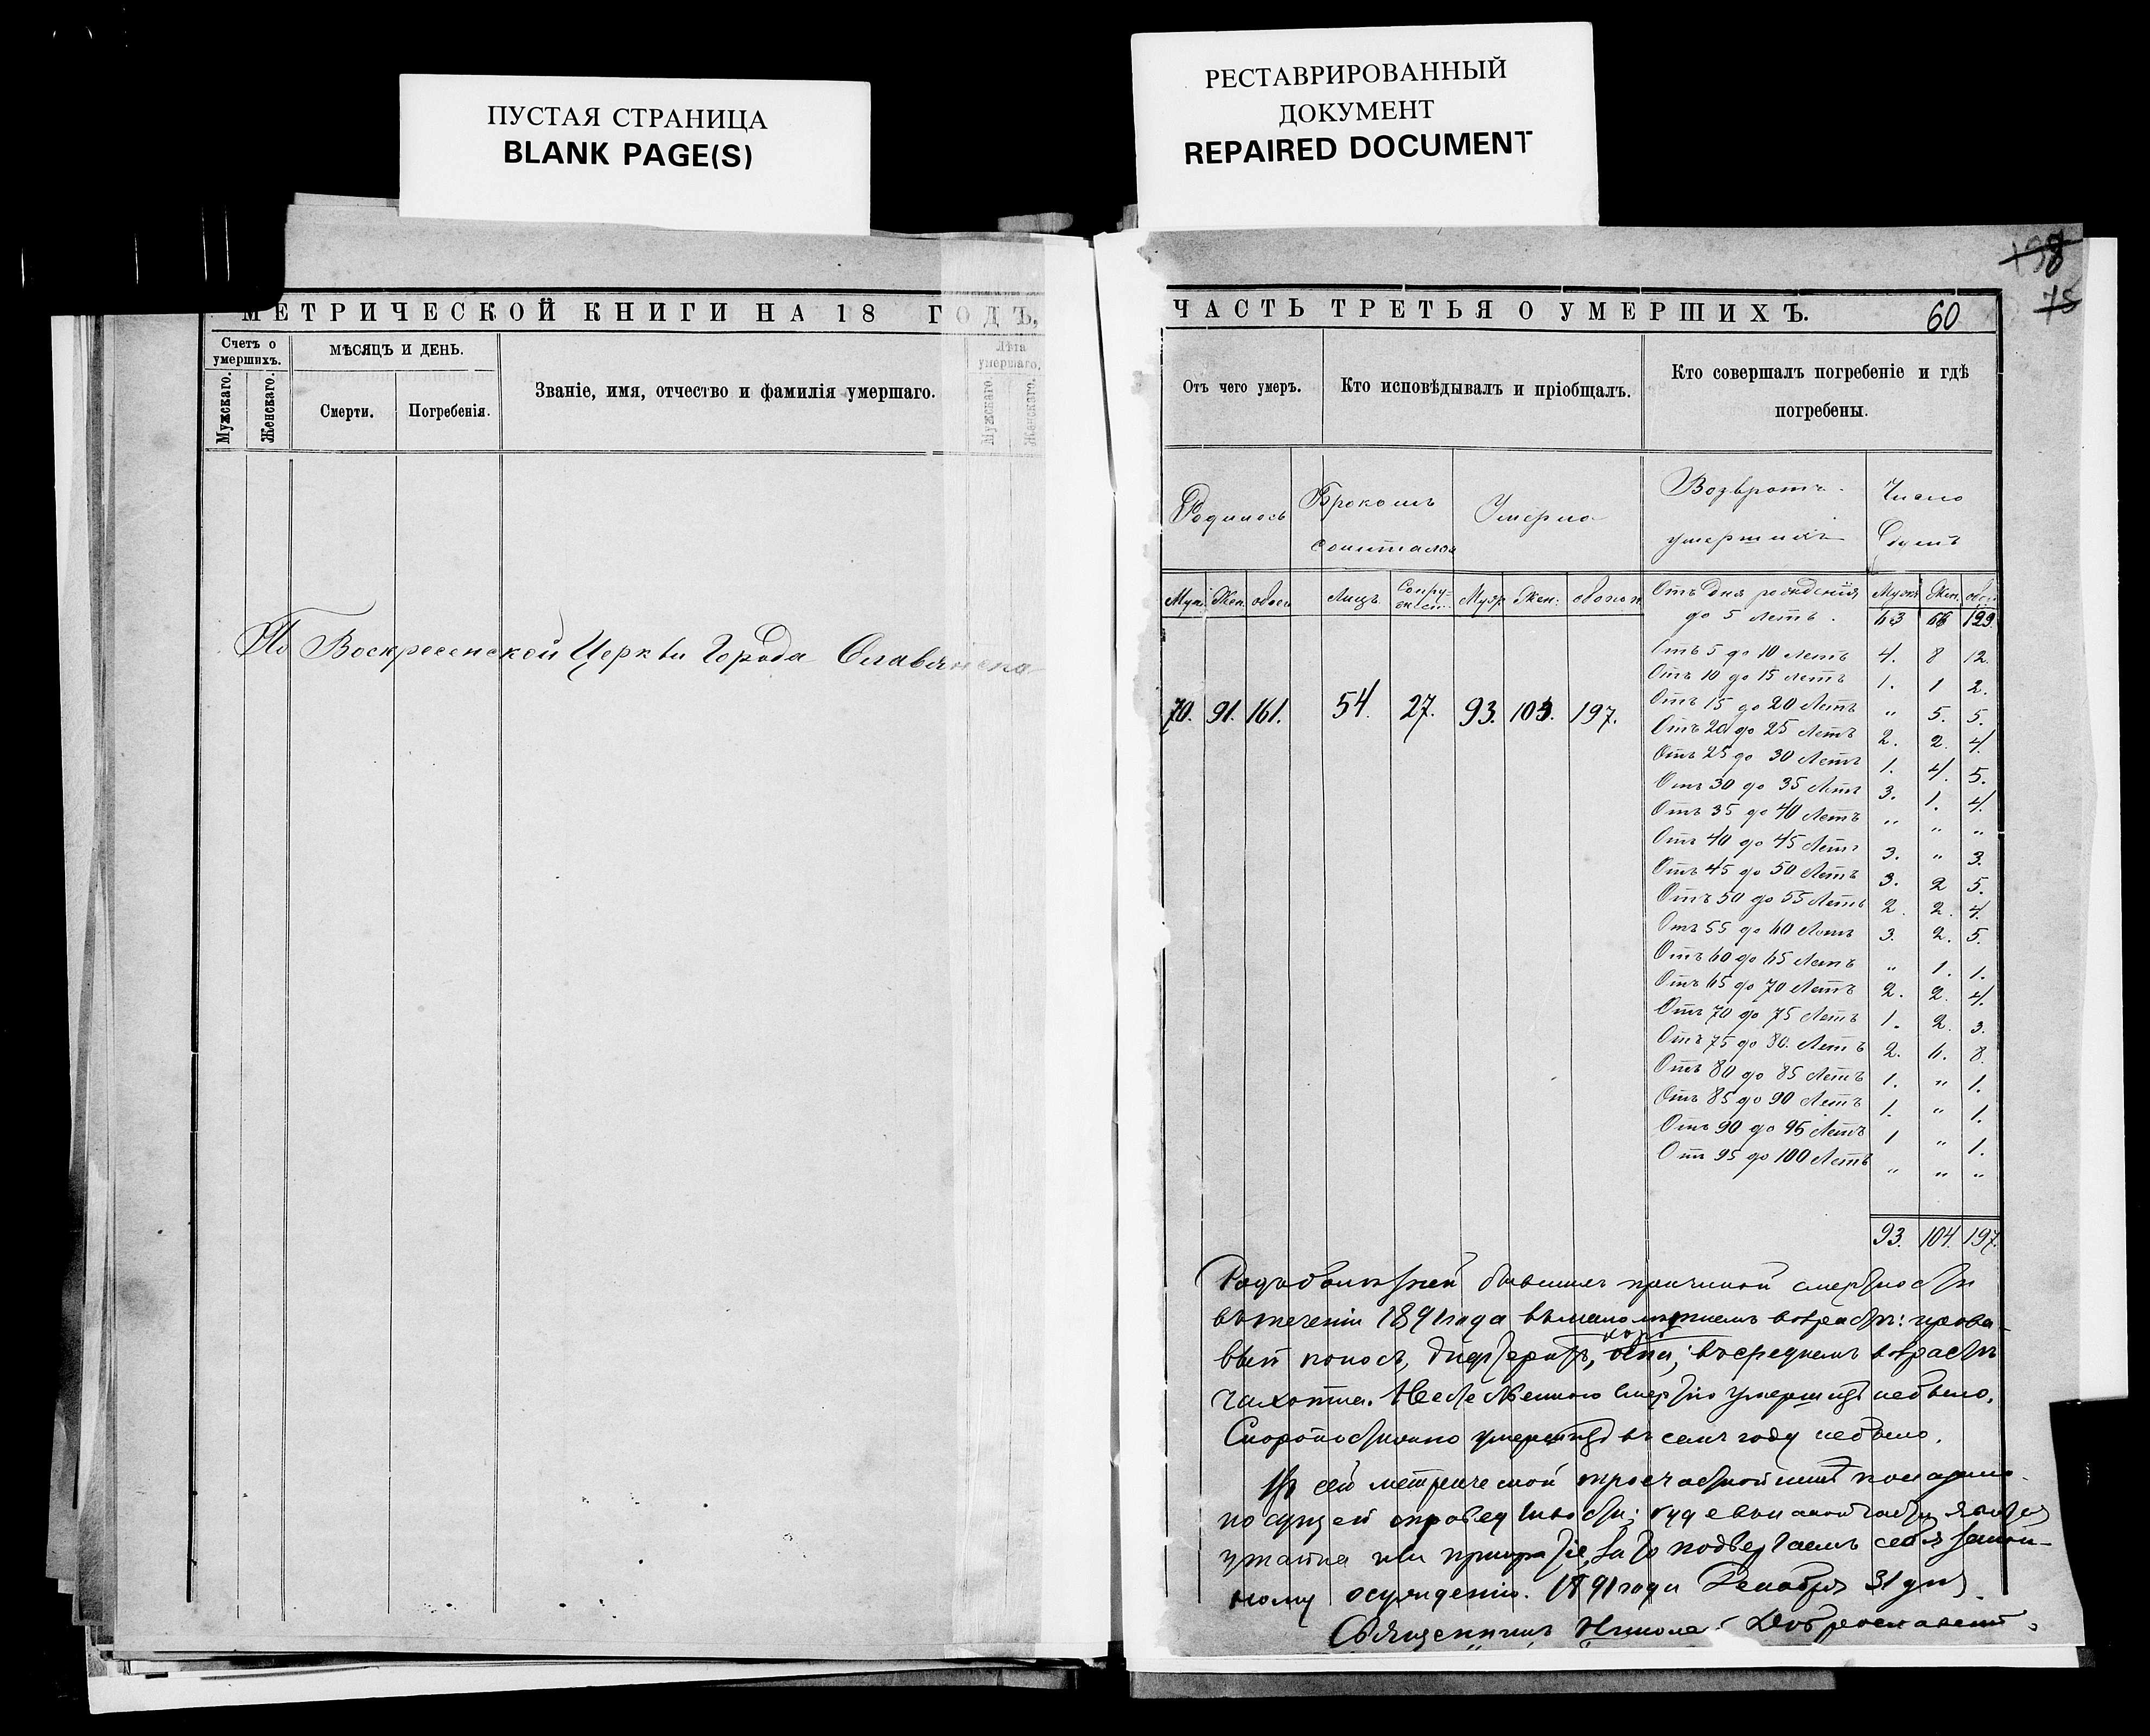 ПУСТАЯ СТРАНИЦА
BLANK PAGE(S)
РЕСТАВРИРОВАННЫЙ
ДОКУМЕНТ
REPAIRED DOCUMENT
198
75
МЕТРИЧЕСКОЙ КНИГИ НА 18 ГОДЪ,
Счетъ о умершихъ.
Мужскаго.
Женскаго.
МѢСЯЦЪ И ДЕНЬ.
Смерти.
Погребенія.
Званіе, имя, отчество и фамилія умершаго.
Лѣта умершаго.
Мужскаго
Женскаго.
По Воскресенской Церкви Города Славянска
ЧАСТЬ ТРЕТЬЯ О УМЕРШИХЪ.
60
Отъ чего умеръ.
Кто исповѣдывалъ и пріобщалъ.
Кто совершалъ погребеніе и гдѣ
погребены.
Родилось
Бракомъ
сочиталось
Умерло
Возврастъ
умершихъ
Число
Душъ
Муж. Жен. обоего Лицъ Супру-жест. Муж. Жен. обоего
70. 91. 161. 54. 27. 93. 104. 197.
Муж. Жен. обог.
Отъ дня рожденія
до 5 летъ. 63 66 129.
Отъ 5 до 10 летъ 4. 8 12.
Отъ 10 до 15 летъ 1. 1 2.
Отъ 15 до 20 Летъ " 5. 5.
Отъ 20 до 25 Летъ 2. 2. 4.
Отъ 25 до 30 Летъ 1. 4. 5.
Отъ 30 до 35 Летъ 3. 1. 4.
Отъ 35 до 40 Летъ " " "
Отъ 40 до 45 Летъ 3. " 3.
Отъ 45 до 50 Летъ 3. 2 5.
Отъ 50 до 55 Летъ 2. 2. 4.
Отъ 55 до 60 Летъ 3. 2. 5.
Отъ 60 до 65 Летъ " 1. 1.
Отъ 65 до 70 Летъ 2. 2. 4.
Отъ 70 до 75 Летъ 1. 2. 3.
Отъ 75 до 80. Летъ 2. 6. 8.
Отъ 80 до 85 Летъ 1. " 1.
Отъ 85 до 90 Летъ 1. " 1.
Отъ 90 до 95 Летъ 1 " 1.
Отъ 95 до 100 Летъ " " "
93. 104. 197.
Родъ болѣзней бывшихъ причиной смертности
въ теченіи 1891 года въ малолѣтнемъ возрастѣ: крова-
вый поносъ, дифтеритъ, корь; въ среднемъ возрастѣ
чахотка. Неестественною смертію умершихъ небыло.
Скоропостижно умершихъ въ семъ году небыло.
Въ сей метрической троечастной книгѣ показано
по сущей справедливости; буде въ какой части явится
утайка или приписка, за то подвергаемъ себя закон-
ному осужденію. 1891 года Декабря 31 дня
Священникъ Николай Доброславскій